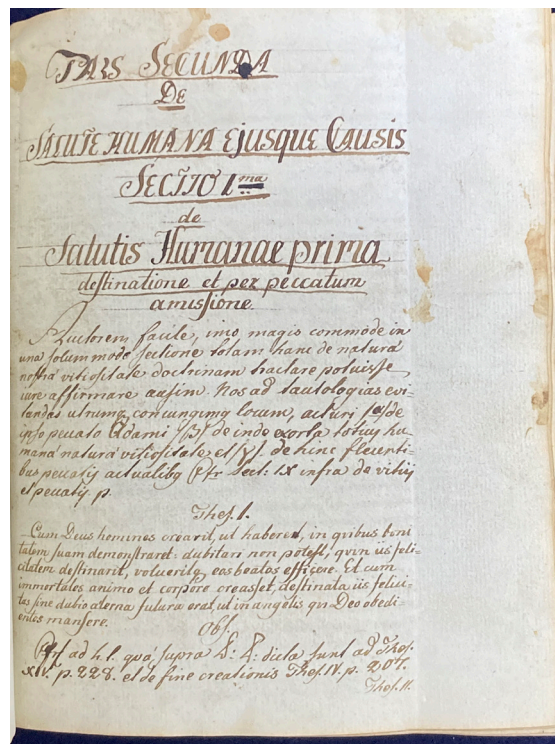 PARS SECUNDA
De
SALUTE HUMANA EJUSQUE CAUSIS
SECTIO I ma
de
Salutis Humanae prima
destinatione et per peccatum
amissione.
Auctorem facile, imo magis commode in
una solum modo sectione totam hanc de natura
nostra vitiositate doctrinam tractare potuisse
iure affirmare ausim. Nos ad tautologias evi-
tandas utrumq conjungimq locum, acturi de
ipso peccato Adami β) deinde exorta totius hu-
mana natura vitiositate et γ) de hinc fluenti-
bus peccatis actualibq Sect. IX infra de vitiis
et peccatis p.
Thes. I.
Cum Deus homines crearit, ut haberet, in quibus boni
tatem suam demonstraret: dubitari non potest, quin iis feli-
citatem destinarit, volueritq eas beatos efficere. Et cum
immortales animo et corpore creasset, destinata iis felici-
tas sine dubio aterna futura erat, ut in angelis qv Deo obedi-
entes mansere.
Obs.
ad h. l. qva supra dicta sunt ad Thes.
XIV. p. 228. et de fine creationis Thes. IV. p. 207.
Thes. II.